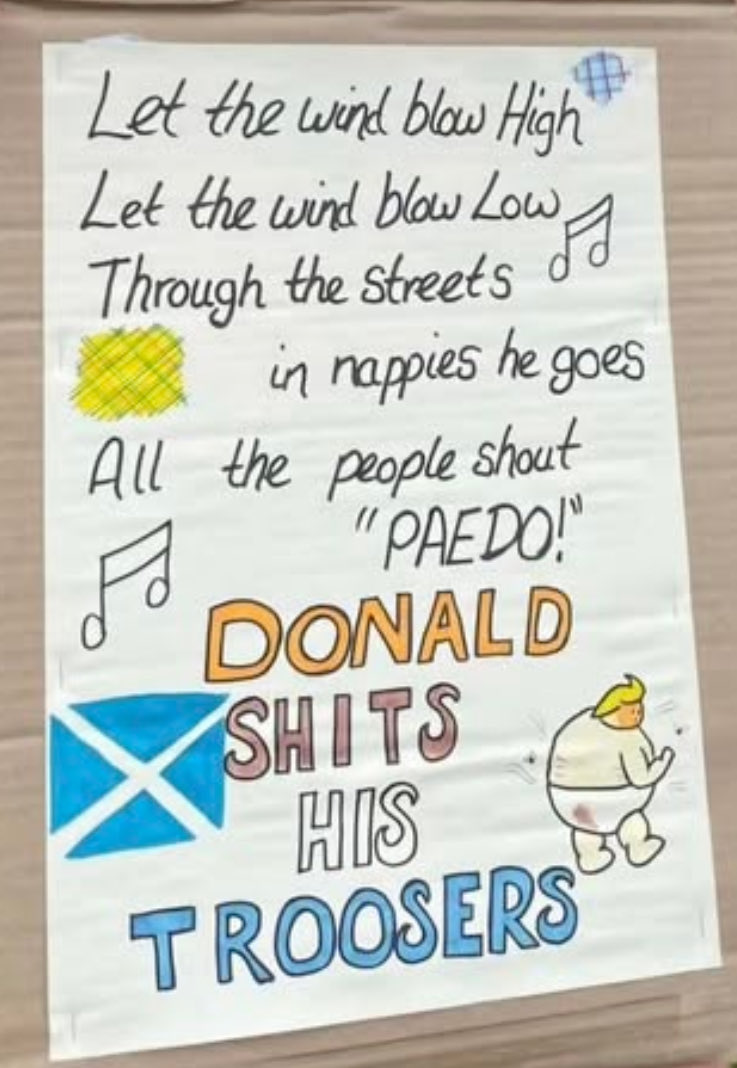 Let the wind blow High
Let the wind blow Low
Through the streets
in nappies he goes
All the people shout
"PAEDO!"
DONALD
SHITS
HIS
TROOSERS